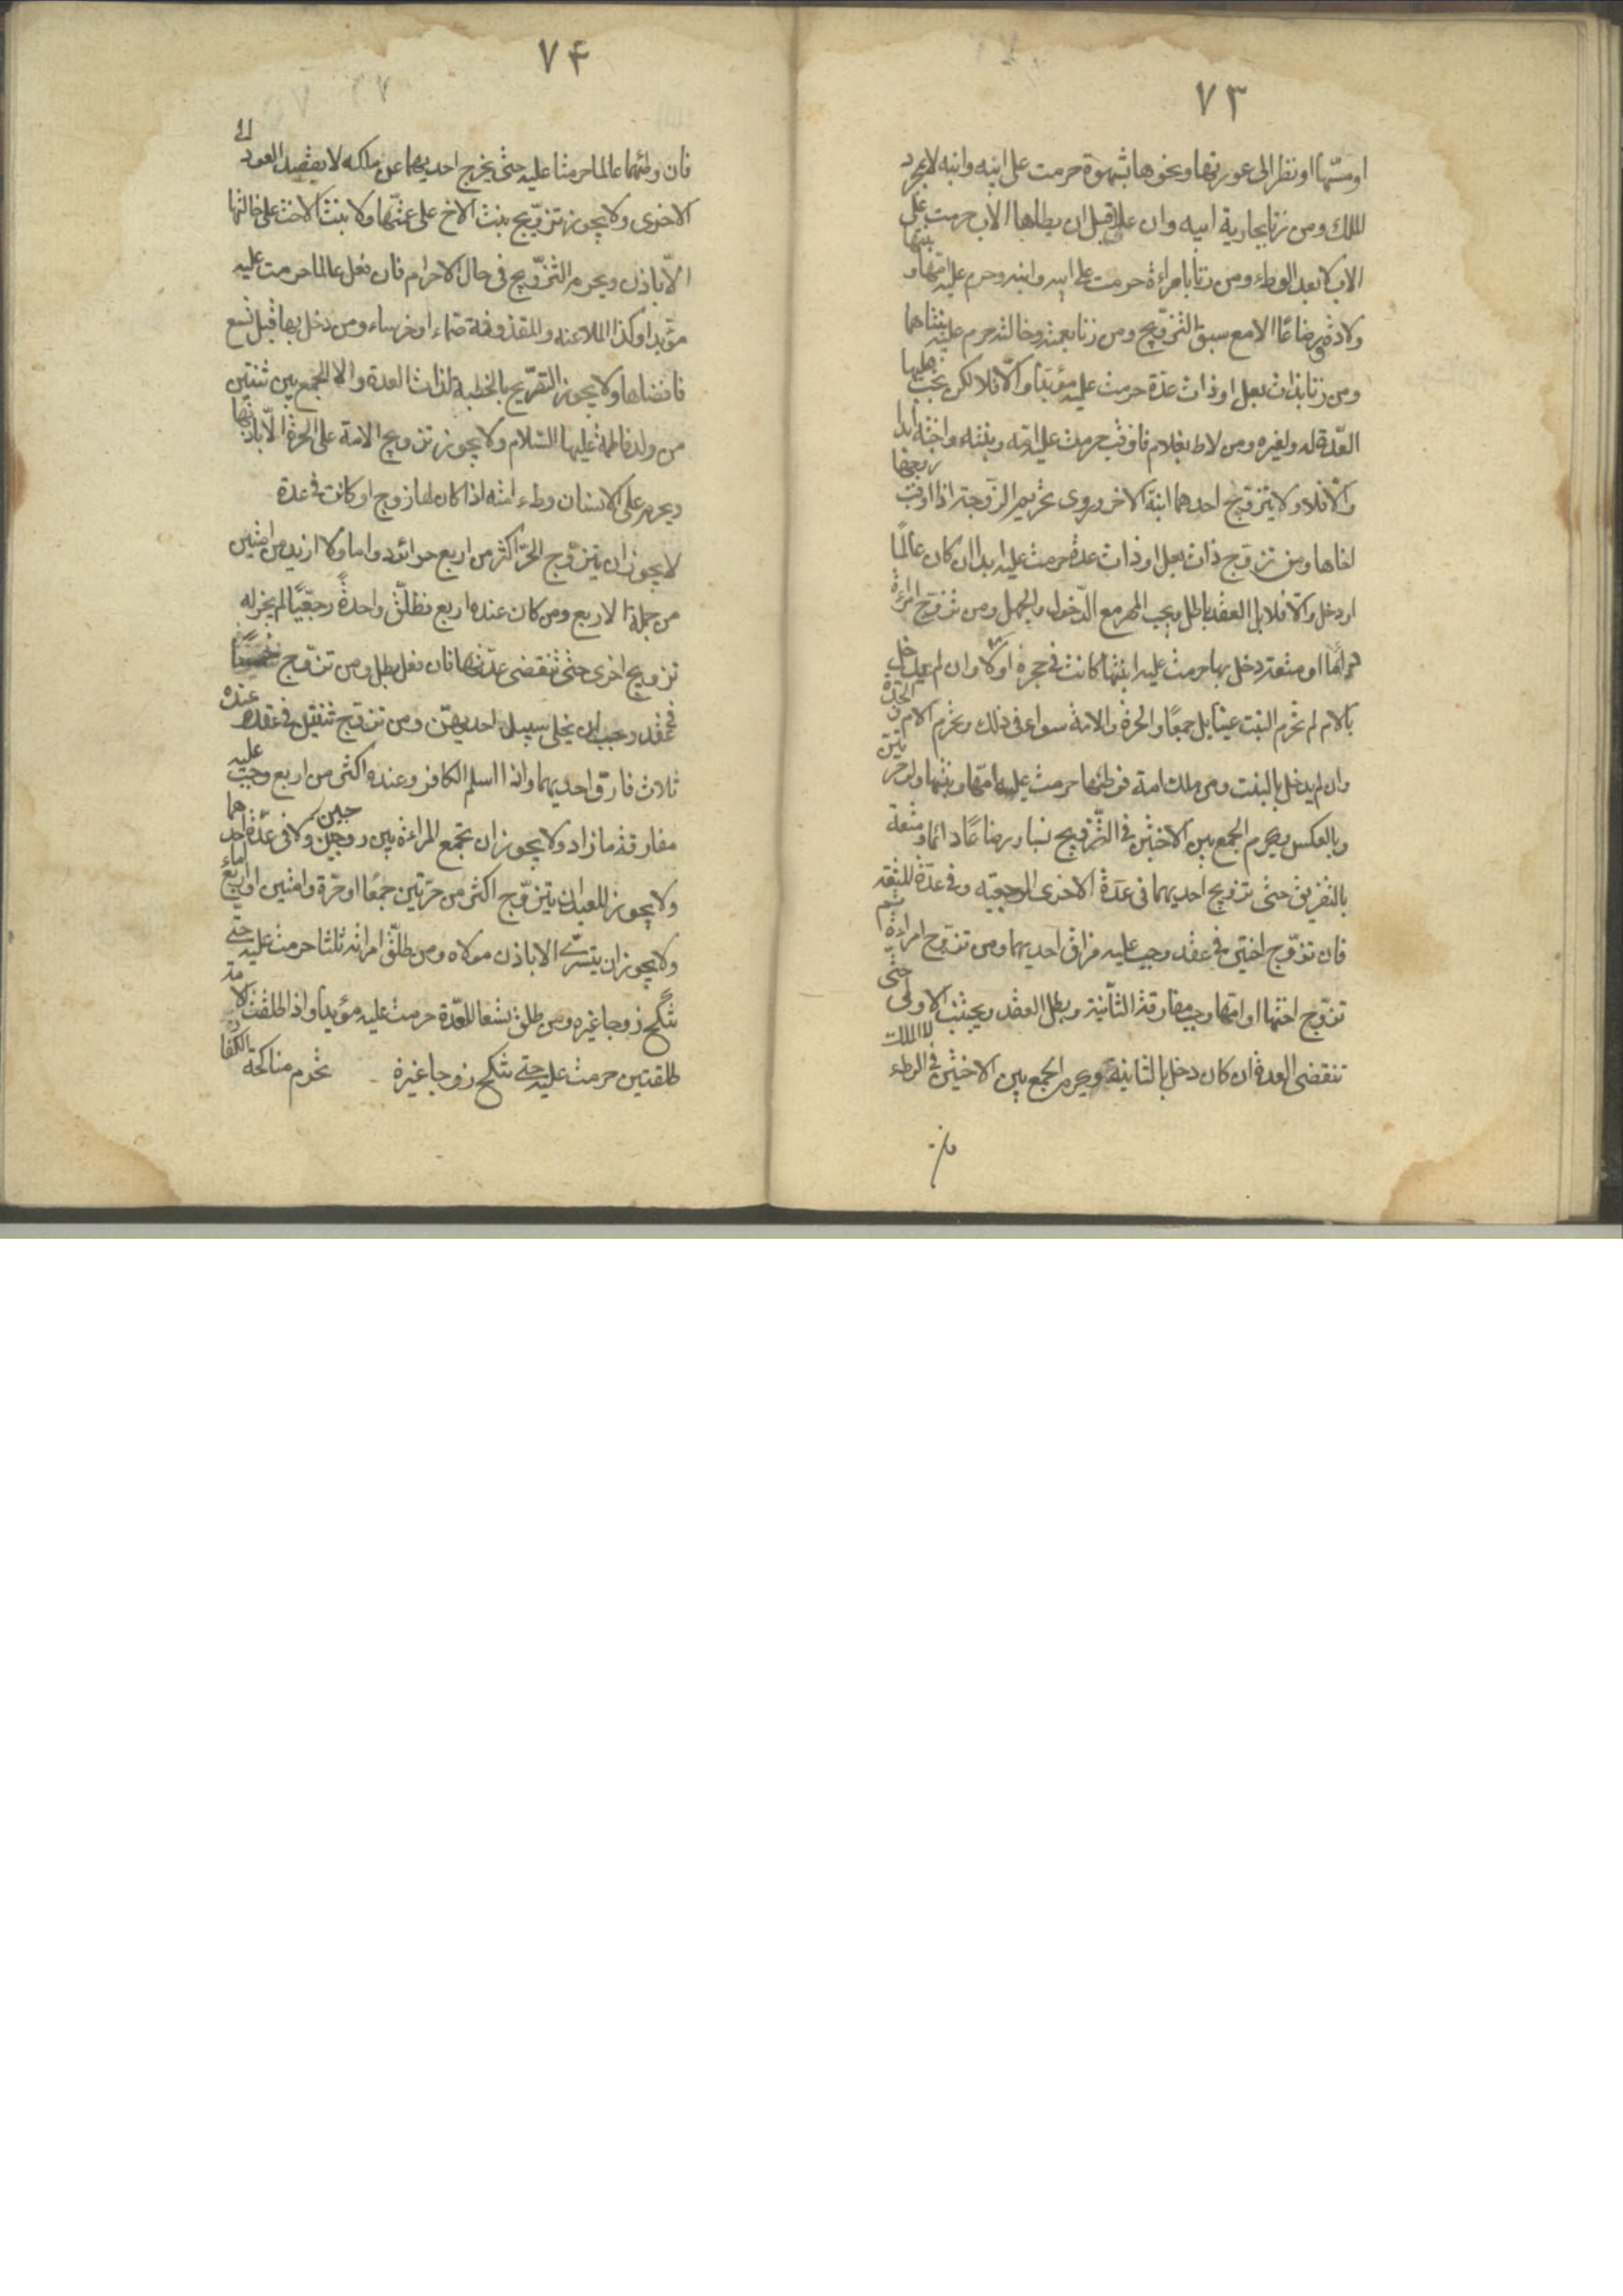 ٧٣
او مسّها او نظر الى عورتها ونحوها بشهوة حرمت على ابيه وابنه لا بمجرد
الملك ومن زنا بجارية ابيه وان علا قبل ان يطاها الاب حرمت على
الاب لا بعد الوطء ومن زنا بامراءة حرمت على ابيه وابنه وحرم عليه امّها وبنتها
ولادة ورضاعًا الا مع سبق التزويج ومن زنا بعمته وخالته حرم عليه بنتاهما
ومن زنا بذات بعل او ذات عدّة حرمت عليه مؤبّدًا والّا فلا لكن تجب عليها
العدّة له ولغيره ومن لاط بغلام فاوقب حرمت عليه امّه وبنته واخته ابدا
والّا فلا ولا يتزوّج احدهما ابنة الاخر وروى تحريم الزّوجة اذا اوقب
اخاها ومن تزوّج ذات بعل او ذات عدة حرمت عليه ابدا ان كان عالمًا
او دخل والّا فلا بل العقد باطل ويجب المهر مع الدّخول والجهل ومن تزوّج امرءة
دوامًا او متعة ودخل بها حرمت عليه ابنتها كانت في حجره او لا وان لم يدخل
بالام لم تحرم البنت عينا بل جمعًا والحرة والامة سواء في ذلك وتحرم الام
وان لم يدخل بالبنت ومن ملك امة فوطئها حرمت عليه امّها وبنتها ولو حرّتين
وبالعكس ويحرم الجمع بين الاختين في التّزويج نسبا ورضاعًا دائما ومتعة
بالتفريق حتى تزويج احديهما في عدّة الاخرى الرجعيّه وفي عدّة المتعة
فان تزوّج اختين في عقد وجب عليه فراق احديهما ومن تزوّج امراءة ثم
تزوّج اختها او امّها وجب مفارقة الثّانية وبطل العقد ويجتنب الاولى حتى
تنقضى العدة ان كان دخل بالثانية ويحرم الجمع بين الاختين في الوطء بالملك
فان
٧۴
فان وطئهما عالما حرمتا عليه حتى يخرج احديهما عن ملكه لا بقصد العود الى
الاخرى ولا يجوز تزويج بنت الاخ على عمّتها ولا بنت الاخت على خالتها
الّا باذن ويحرم التزّويج في حال الاحرام فان فعل عالما حرمت عليه
مؤبدا وكذا الملاعنه والمقذوفة صمّاء او خرساء ومن دخل بها قبل تسع
فافضاها ولا يجوز التصّريح بالخطبة لذات العدة والا الجمع بين ثنتين
من ولد فاطمة عليها السّلام ولا يجوز تزويج الامة على الحرّة الّا باذنها
ويحرم على الانسان وطء امته اذا كان لها زوج او كانت في عدة
لا يجوز ان يتزوّج الحرّ اكثر من اربع حرائر دواما ولا ازيد من امتين
من جملة الاربع ومن كان عنده اربع فطلّق واحدةً رجعيًّا لم يجز له
تزويج اخرى حتى تنقضى عدّتها فان فعل بطل ومن تزوّج خمسًا
في عقد وجب ان يخلى سبيل احديهنّ ومن تزوّج ثنتين في عقد وعنده
ثلاث فارق احديهما واذا اسلم الكافر وعنده اكثر من اربع وجب عليه
مفارقة ما زاد ولا يجوز ان تجمع المراءة بين زوجين ولا في عدّة احدهما
ولا يجوز للعبد ان يتزوّج اكثر من حرّتين جمعًا او حرّة وامتين او اربع اماء
ولا يجوز ان يتسرّى الا باذن مولاه ومن طلّق امراته ثلثا حرمت عليه حتى
تنكح زوجا غيره ومن طلق تسعا للعدّة حرمت عليه مؤبدًا واذا طلقت الامة
طلقتين حرمت عليه حتى تنكح زوجا غيره تحرم مناكحة الكفار